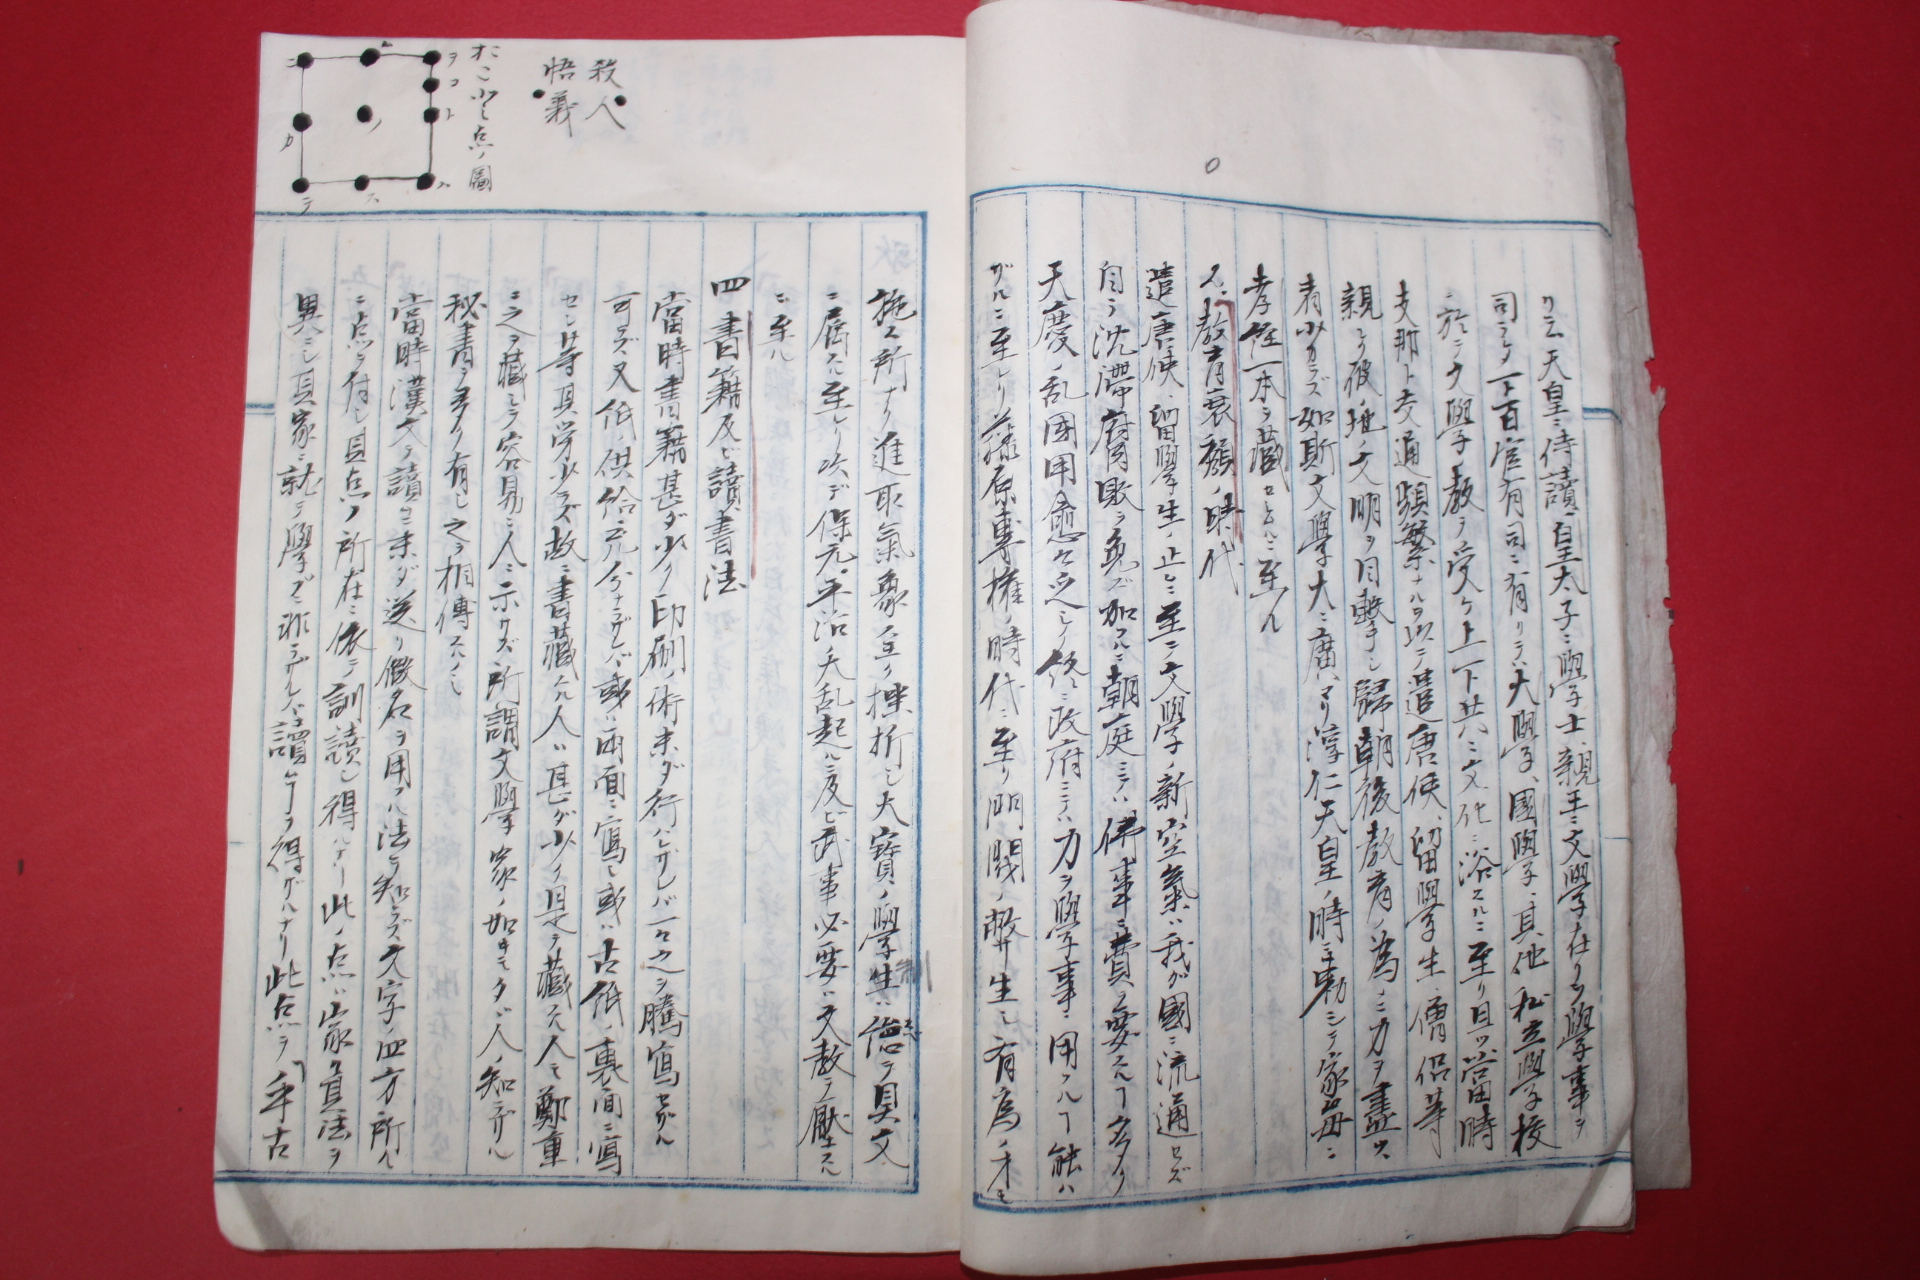 リ云天皇ニ侍讀皇太子ニ學士、親王ニ文學在リテ學事ヲ
司ラシメ下百官有司ニ有リテハ大學、國學、其他私立學校
ニ於テ文學ノ教ヲ受ケ上下共ニ文化ニ浴スルニ至リ且ツ當時
支那ト交通頻繁ナルヲ以テ遣唐使、留學生、僧侶等
親シク彼地ノ文明ヲ目撃シ歸朝後教育ノ為メニ力ヲ盡ス
者少カラズ如斯文學大ニ廣マリ淳仁天皇ノ時ニ勅シテ家毎ニ
孝經一本ヲ藏セシムルニ至ル
ス、教育衰頽ノ時代
遣唐使、留學生ノ止ムニ至テ文學ノ新空氣ハ我ガ國ニ流通セズ
自ラ沈滯腐敗ヲ免レズ加フルニ朝庭ニテハ佛事ニ費ヲ要スルコト多ク
天慶ノ乱國用愈々乏シク終ニ政府ニテハ力ヲ學事ニ用フルコト能ハ
ザルニ至レリ藤原專權ノ時代ニ至リ門閥ノ弊生シ有為ノ才モ
施ス所ナク進取氣象全ク挫折シ大寶ノ學生ハ徒ラニ文
ニ屬スルニ至レリ次デ保元平治ノ大乱起ルニ及ビ武事必要ハ文教ヲ壓スル
ニ至ル
四 書籍及ビ讀書法
當時書籍甚ダ少ク印刷ノ術未ダ行ハレザレバ一々之ヲ謄寫セザル
可ラズ又紙ノ供給充分ナラザレバ或ハ両面ニ寫シ或ハ古紙ノ裏面ニ寫
セシ等其労少ラズ故ニ書藏スル人ハ甚ダ少ク是ヲ藏スル人モ鄭重
ニ之ヲ藏シテ容易ニ人ニ示サズ所謂文學家ノ如キモタダ人ノ知ラザル
秘書ヲ多ク有シ之ヲ相傳スルノミ
當時漢文ヲ讀ムニ未ダ送リ假名ヲ用フル法ヲ知ラズ文字ノ四方所々
ニ点ヲ付シ其点ノ所在ニ依テ訓讀シ得ルナリ此ノ点ハ家々其法ヲ
異ニシ其家ニ就テ學ブニ非ラザレバ讀ムコトヲ得ザルナリ此点ヲ「乎古
殺人
悟義
おこと点ノ圖
ヲ
コ
ト
ニ
ノ
カ
ハ
ス
テ